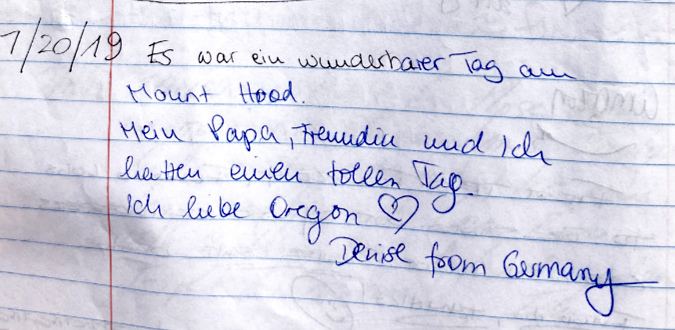 1/20/19 Es war ein wunderbarer Tag am
Mount Hood.
Mein Papa, Freundin und Ich
hatten einen tollen Tag.
Ich liebe Oregon ♡
Denise from Germany